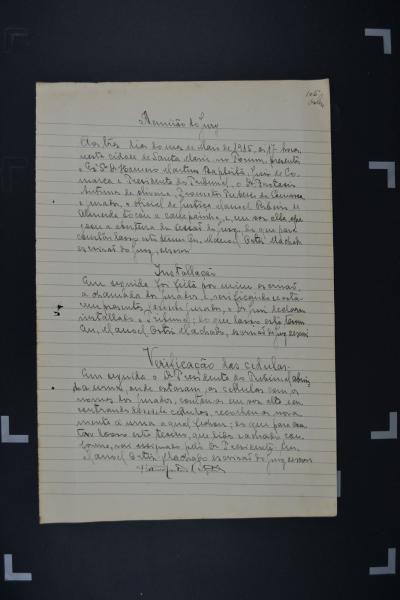 105
Reunião do Jury
Aos três dias do mez de Maio de 1915, ás 17 horas,
nesta cidade de Santa Maria, no Forum, presente
o Dr. Homero Martins Baptista, Juiz de Co-
marca e Presidente do Tribunal, o Dr.
de Oliveira, Promotor Publico da Comarca
e jurados, o official de justiça Manoel Ribeiro de
Almeida tocou a campainha, e, em voz alta,
a abertura da sessão do jury, do que para
constar lavro este termo. Eu, Manoel Machado
escrivão do jury, escrevi
Installação
Em seguida foi feita por mim escrivão,
a chamada dos jurados e, verificando-se esta-
rem presentes jurados, o Dr. Juiz declarou
installado o Tribunal; do que lavro este termo
Eu, Manoel Machado, escrivão do jury, escrevi
Verificação das cedulas
Em seguida o Dr. Presidente do Tribunal abrin-
do a urna, onde estavam, as cedulas com os
nomes dos jurados, contou-a em voz alta, en-
contrando cedulas, recolheu-as nova-
mente á urna a qual fechou; do que para cons-
tar lavro este termo, que lido e achado con-
forme, vae assignado pelo Dr. Presidente. Eu
Manoel Machado escrivão do jury, escrevi